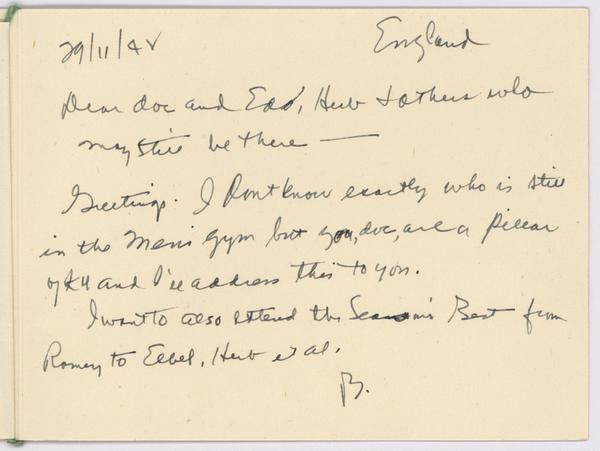 29/11/42
England
Dear doc and Edd, Herb & others who
may still be there —
Greetings. I Don't know exactly who is still
in the Men's Gym but you, doc, are a pillar
of and I'll address this to you.
I want to also extend the Season's Best from
Romey to Elbel, Herb et al.
B.